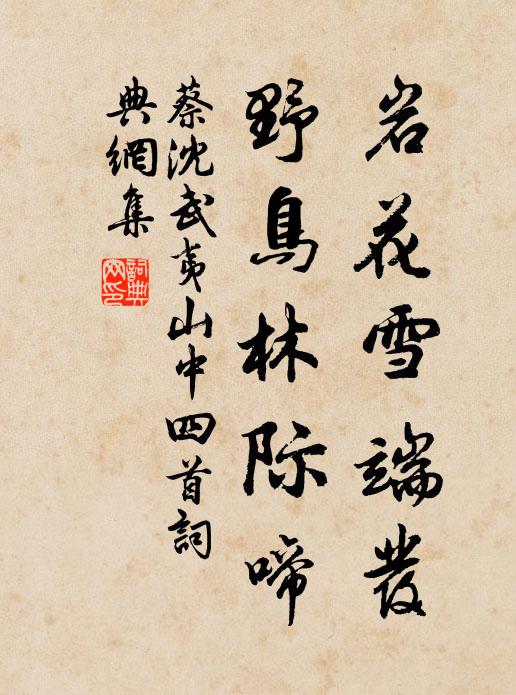 岩花雪端發
野鳥林际啼
蔡沈武夷山中四首詞
典網集
詞典
网印